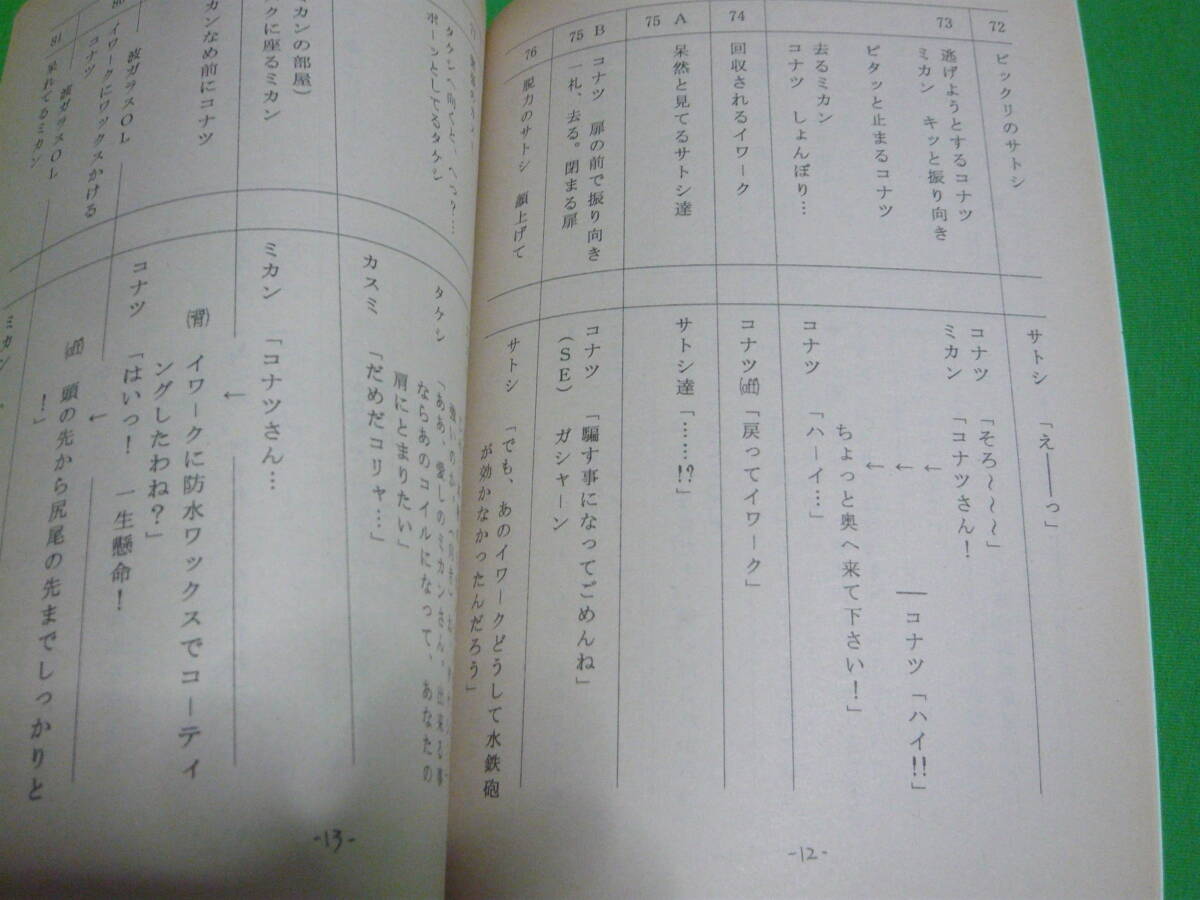 72
ビックリのサトシ
サトシ 「え――っ」
73
逃げようとするコナツ
ミカン キッと振り向き
コナツ 「そろ～～～」
ミカン 「コナツさん！
← ――コナツ「ハイ!!」
←
←
ちょっと奥へ来て下さい！」
ピタッと止まるコナツ
去るミカン
コナツ しょんぼり…
コナツ 「ハーイ…」
74
回収されるイワーク
コナツ㈹「戻ってイワーク」
75 A
呆然と見てるサトシ達
サトシ達「……!?」
75 B
コナツ 扉の前で振り向き
一礼、去る。閉まる扉
コナツ 「騙す事になってごめんね」
（ＳＥ） ガシャーン
76
脱力のサトシ 顔上げて
サトシ 「でも、あのイワークどうして水鉄砲
が効かなかったんだろう」
-12-
タケシへ向くと、へっ？…
ポーンとしてるタケシ
タケシ
「ああ、愛しのミカンさん。出来る事
ならあのコイルになって、あなたの
肩にとまりたい」
カスミ 「だめだコリャ…」
カンの部屋）
クに座るミカン
ミカン 「コナツさん…
カンなめ前にコナツ
←
㈼ イワークに防水ワックスでコーティ
ングしたわね？」
波ガラスＯＬ
80
イワークにワックスかける
コナツ
コナツ 「はいっ！ 一生懸命！
←
波ガラスＯＬ
81
呆れてるミカン
(off) 頭の先から尻尾の先までしっかりと
！」
ミカン
-13-